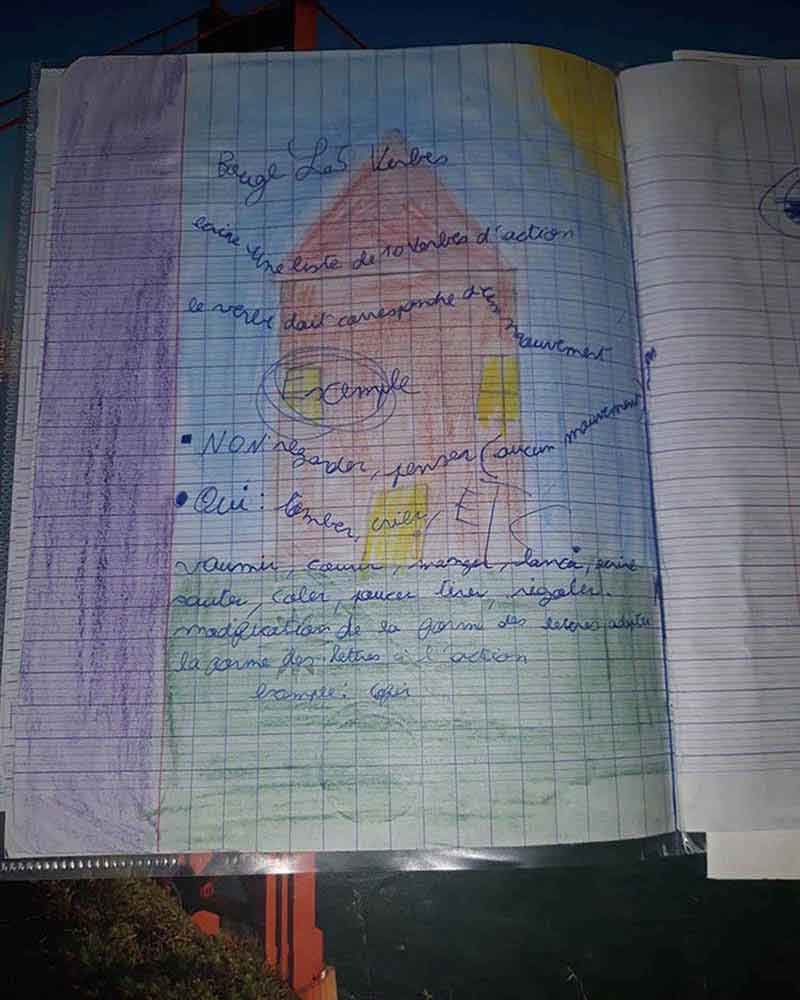 Bouge Les Verbes
ecrire une liste de 10 verbes d'action
le verbe doit correspondre à un mouvement
Exemple
NON: regarder, penser (aucun mouvement)
Oui: tomber, crier, ETC
vaumir, courir, manger, lancé, ecrire
sauter, coler, poucer tirer, rigoler.
modification de la forme des letres adapter
la forme des lettres à l'action
example: